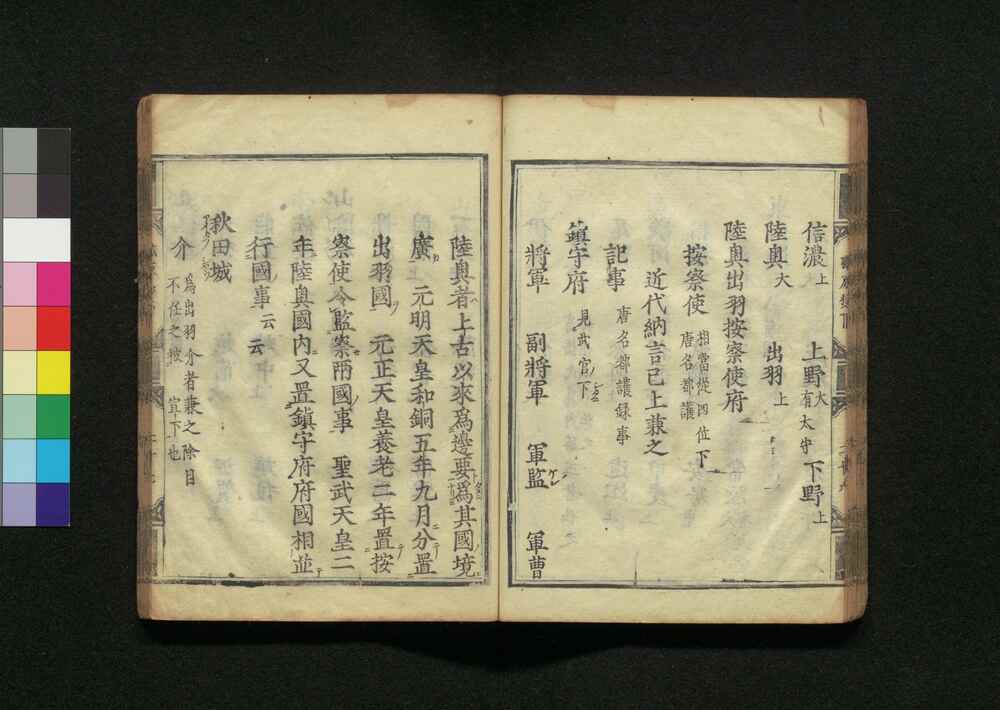 信濃上　上野大有太守　下野上
陸奥大　出羽上
陸奥出羽按察使府
按察使　相當從四位下
唐名都護
近代納言已上兼之
記事　唐名都護録事
鎮守府　見武官下
將軍　副將軍　軍監　軍曹
陸奥者上古以來爲邊要爲其國境
廣　元明天皇和銅五年九月分置
出羽國　元正天皇養老二年置按
察使令監察兩國事　聖武天皇二
年陸奥國内又置鎮守府府國相並
行國事云云
秋田城
介　爲出羽介者兼之除目
不任之被宣下也